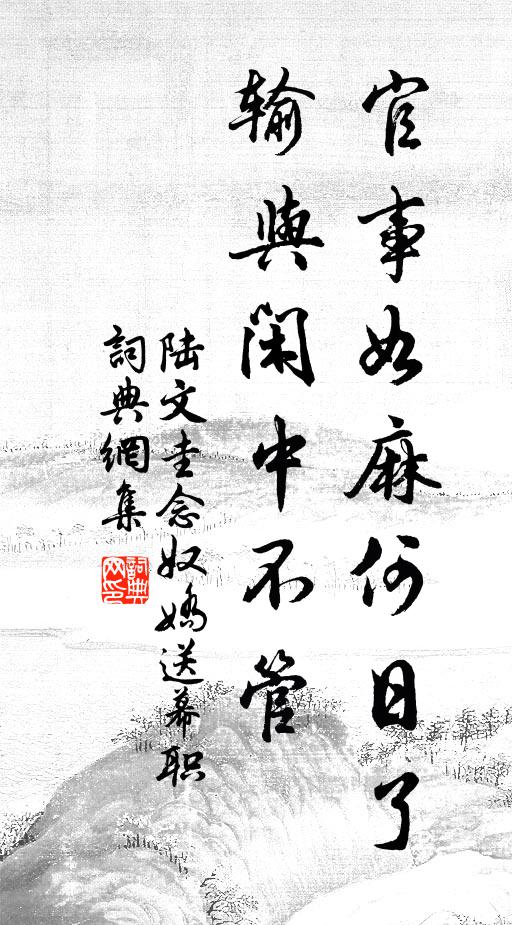 官事如麻何日了
输与闲中不管
陆文圭念奴娇送幕职
词典网集
词典网印